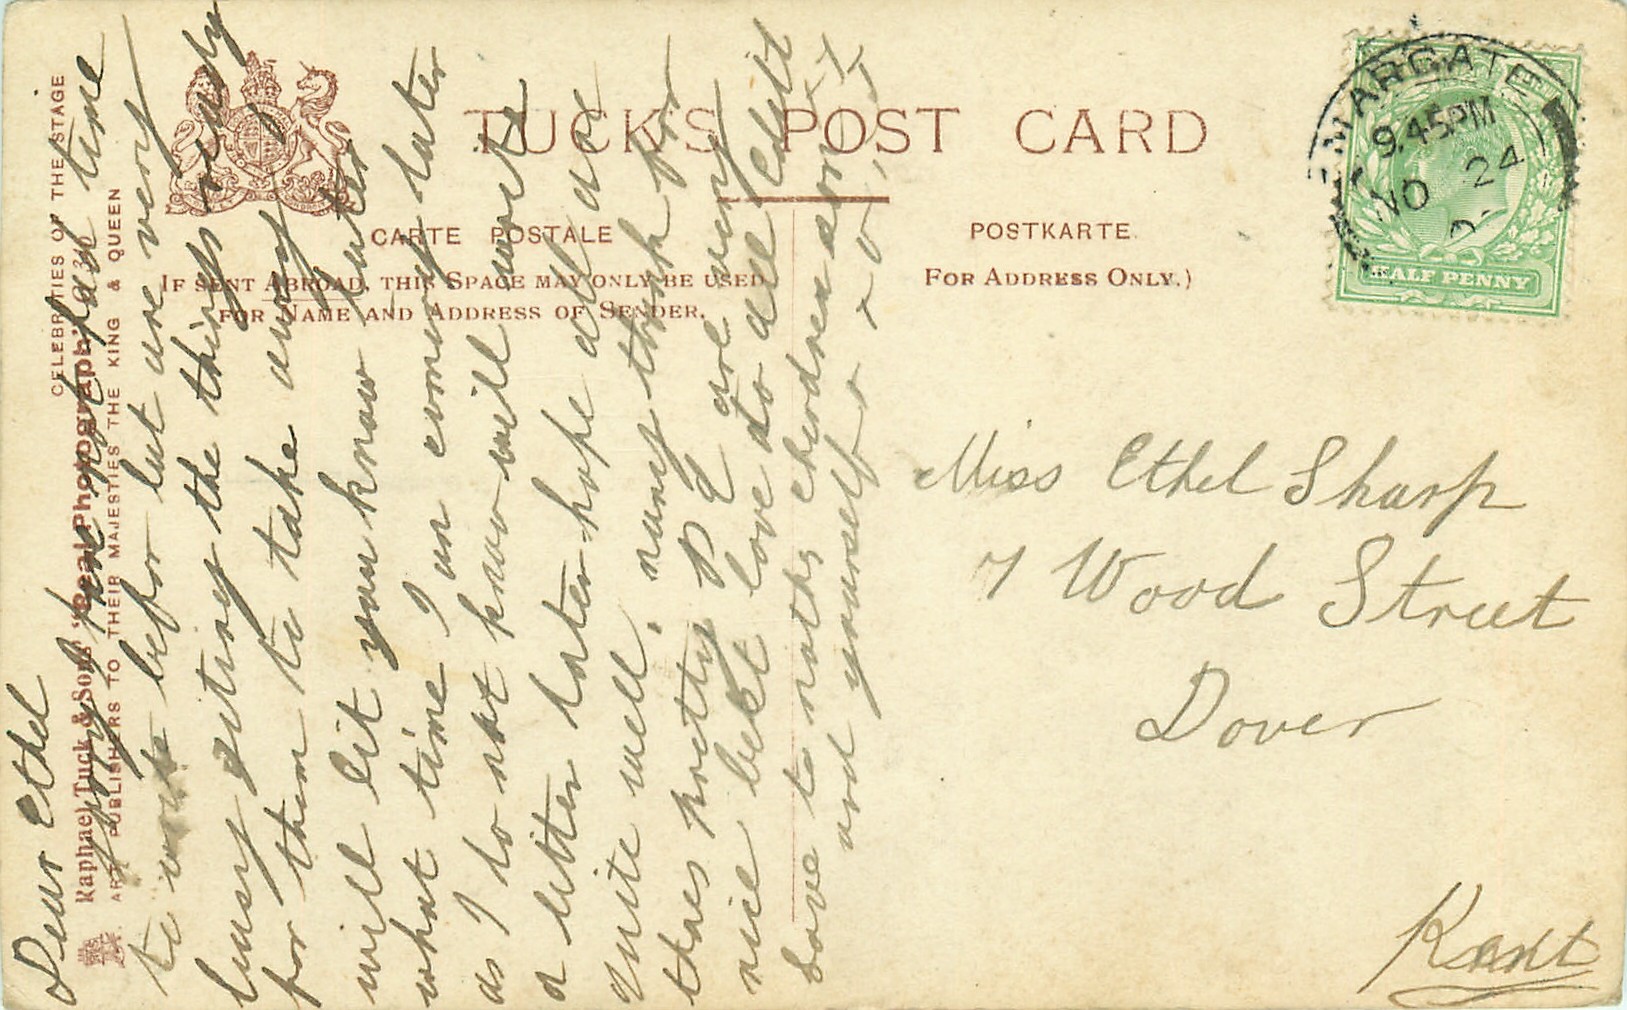 TUCK'S POST CARD
CARTE POSTALE
POSTKARTE
IF SENT ABROAD, THIS SPACE MAY ONLY BE USED
FOR NAME AND ADDRESS OF SENDER.
FOR ADDRESS ONLY.)
CELEBRITIES OF THE STAGE
Raphael Tuck & Sons' "Real Photograph"
ART PUBLISHERS TO THEIR MAJESTIES THE KING & QUEEN
MARGATE
9.45PM
NO 24
HALF PENNY
Dear Ethel
have not had time
to write befor but are very
busy giting the things ready
for them to take away
will lit you know later
what time I un coming later
as I do not know will write
a litter later hope all are
quite well. many think for
thoes pretty P C are very
nice bekt love to all Eduit
love to childrens
and yourself
Miss Ethel Sharp
7 Wood Street
Dover
Kent